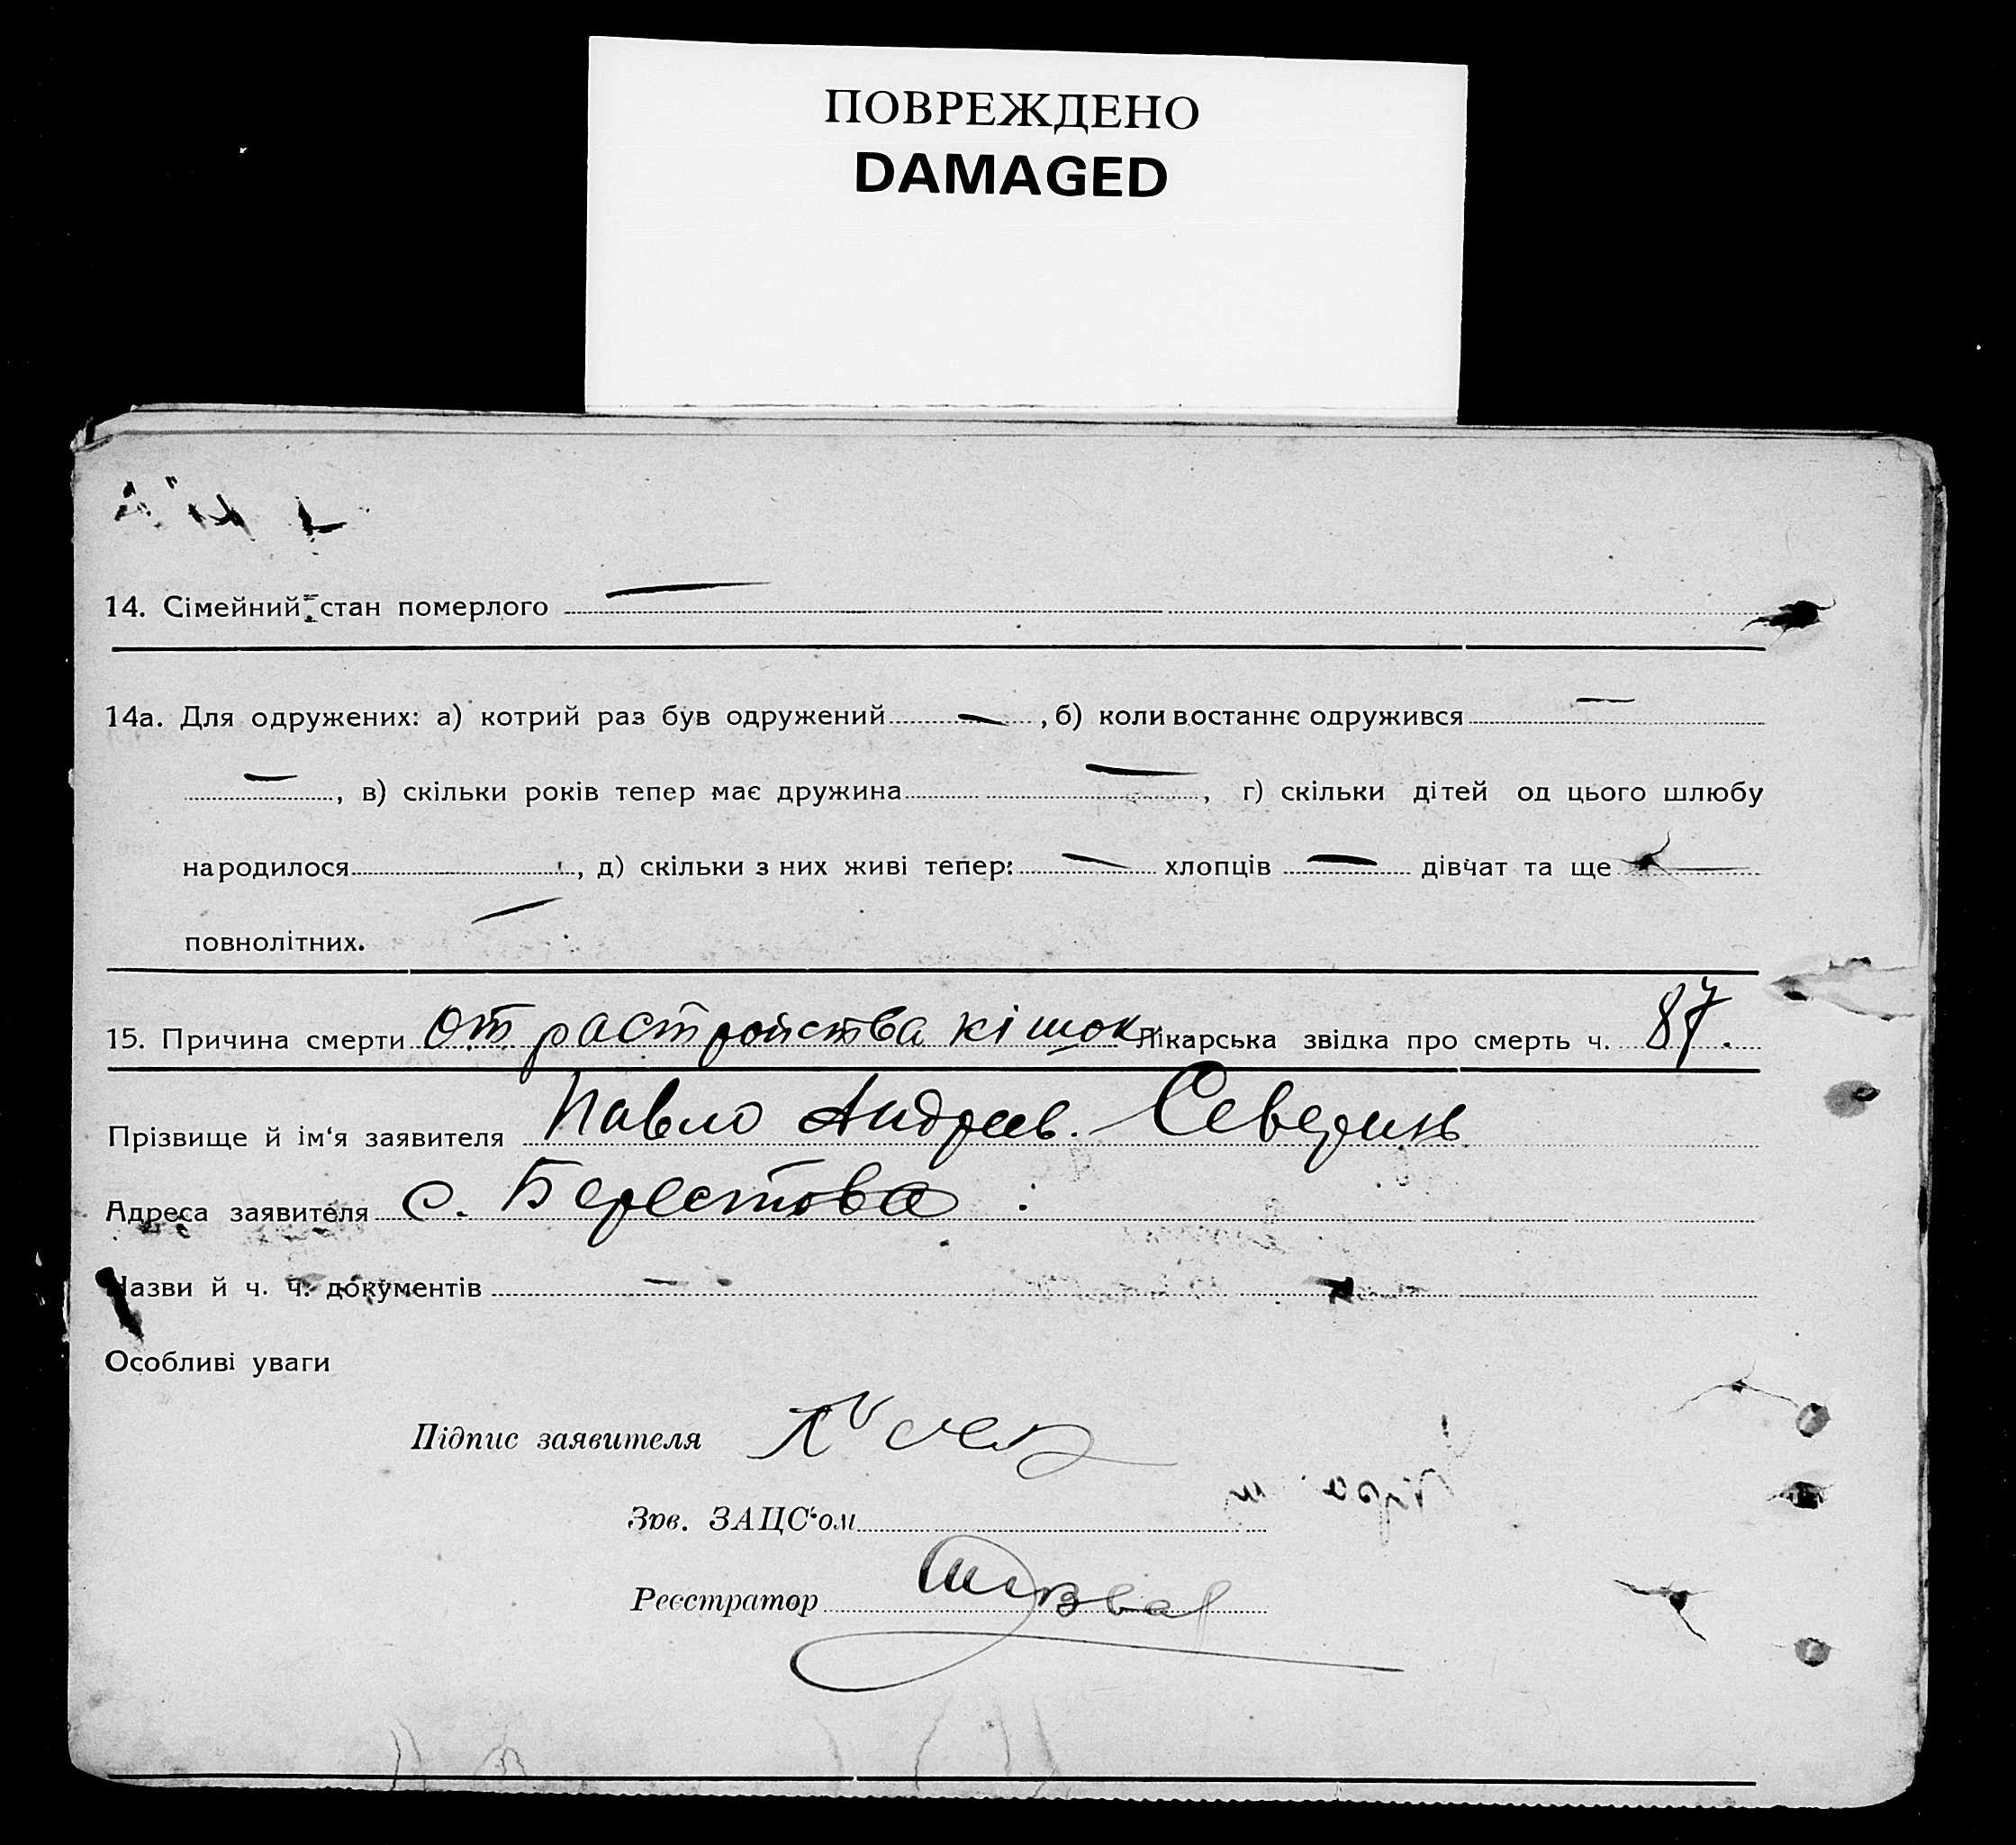 ПОВРЕЖДЕНО
DAMAGED
14. Сімейний стан померлого —
14а. Для одружених: а) котрий раз був одружений — , б) коли востаннє одружився —
— , в) скільки років тепер має дружина — , г) скільки дітей од цього шлюбу
народилося , д) скільки з них живі тепер: — хлопців — дівчат та ще —
повнолітних.
15. Причина смерти от растройства кішок Лікарська звідка про смерть ч. 87.
Прізвище й ім'я заявителя Павло Андреев. Северин
Адреса заявителя с. Берестова
Назви й ч. ч. документів —
Особливі уваги
Підпис заявителя
Зав. ЗАЦС'ом
Реєстратор